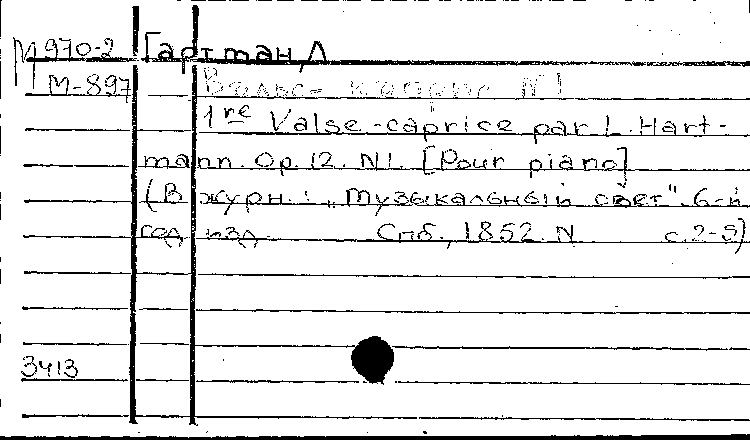 М 970-2 Гартман, Л
М-897 Вальс-каприс N1
1re Valse-caprice par L. Hart-
mann. Op. 12. N1. [Pour piano]
(В журн.: „Музыкальный свет". 6-й
год изд. Спб., 1852. N с. 2-5)
3413